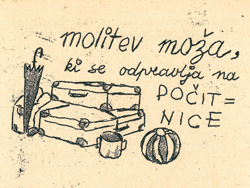 molitev moža,
ki se odpravlja na
POČIT=
NICE